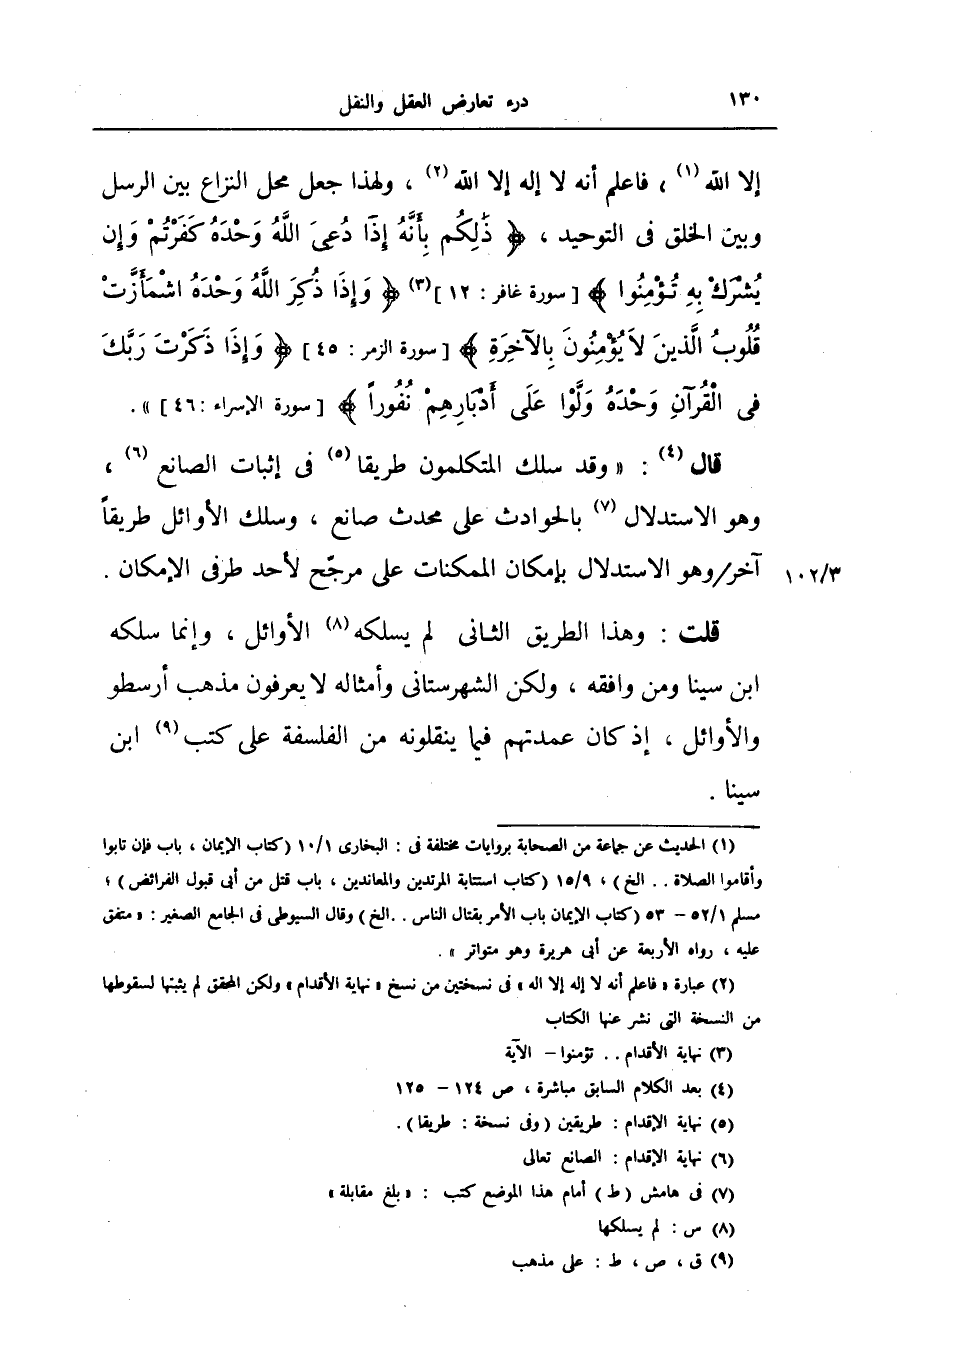 ١٣٠ درء تعارض العقل والنقل
إلا الله (١) ، فاعلم أنه لا إله إلا الله (٢) ، ولهذا جعل محل النزاع بين الرسل
وبين الخلق فى التوحيد ، ﴿ ذَٰلِكُم بِأَنَّهُ إِذَا دُعِىَ اللَّهُ وَحْدَهُ كَفَرْتُمْ وَإِن
يُشْرَكْ بِهِ تُؤْمِنُوا ﴾ [ سورة غافر : ١٢ ] (٣) ﴿ وَإِذَا ذُكِرَ اللَّهُ وَحْدَهُ اشْمَأَزَّتْ
قُلُوبُ الَّذِينَ لاَ يُؤْمِنُونَ بِالآخِرَةِ ﴾ [ سورة الزمر : ٤٥ ] ﴿ وَإِذَا ذَكَرْتَ رَبَّكَ
فِى الْقُرْآنِ وَحْدَهُ وَلَّوْا عَلَى أَدْبَارِهِمْ نُفُوراً ﴾ [ سورة الإسراء : ٤٦ ] » .
قال (٤) : « وقد سلك المتكلمون طريقا (٥) فى إثبات الصانع (٦) ،
وهو الاستدلال (٧) بالحوادث على محدث صانع ، وسلك الأوائل طريقاً
آخر/وهو الاستدلال بإمكان الممكنات على مرجّح لأحد طرفى الإمكان . ١٠٢/٣
قلت : وهذا الطريق الثانى لم يسلكه (٨) الأوائل ، وإنما سلكه
ابن سينا ومن وافقه ، ولكن الشهرستانى وأمثاله لا يعرفون مذهب أرسطو
والأوائل ، إذ كان عمدتهم فيما ينقلونه من الفلسفة على كتب (٩) ابن
سينا .
(١) الحديث عن جماعة من الصحابة بروايات مختلفة فى : البخارى ١٠/١ (كتاب الإيمان ، باب فإن تابوا
وأقاموا الصلاة . . الخ) ، ١٥/٩ (كتاب استتابة المرتدين والمعاندين ، باب قتل من أبى قبول الفرائض) ؛
مسلم ٥٢/١ – ٥٣ (كتاب الإيمان باب الأمر بقتال الناس . . الخ) وقال السيوطى فى الجامع الصغير : « متفق
عليه ، رواه الأربعة عن أبى هريرة وهو متواتر » .
(٢) عبارة « فاعلم أنه لا إله إلا اله » فى نسختين من نسخ « نهاية الأقدام » ولكن المحقق لم يثبتها لسقوطها
من النسخة التى نشر عنها الكتاب
(٣) نهاية الأقدام . . تؤمنوا – الآية
(٤) بعد الكلام السابق مباشرة ، ص ١٢٤ – ١٢٥
(٥) نهاية الإقدام : طريقين (وفى نسخة : طريقا) .
(٦) نهاية الإقدام : الصانع تعالى
(٧) فى هامش (ط) أمام هذا الموضع كتب : « بلغ مقابلة »
(٨) س : لم يسلكها
(٩) ق ، ص ، ط : على مذهب